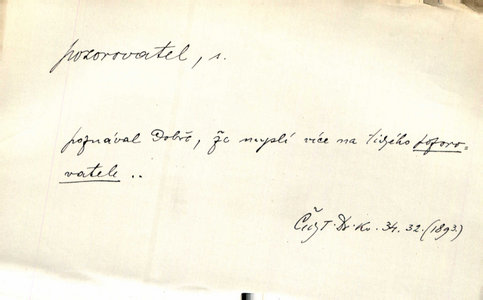 pozorovatel, s.
poznával Dobř, že myslí více na jiného pozoro-
vatele ..
Čes. T. Dr. Kv. 34. 32. (1893.)